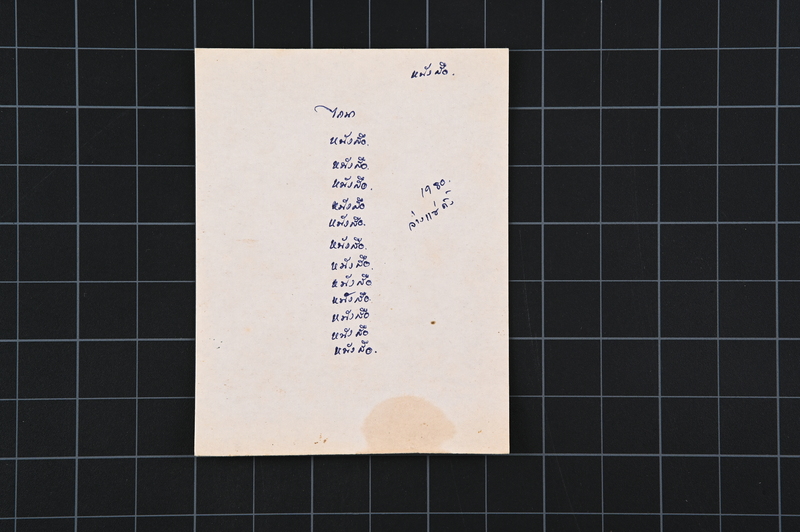 หนังสือ.
หนังสือ.
หนังสือ.
หนังสือ.
หนังสือ
หนังสือ.
หนังสือ.
หนังสือ.
หนังสือ
หนังสือ
หนังสือ
หนังสือ
หนังสือ.
1980.